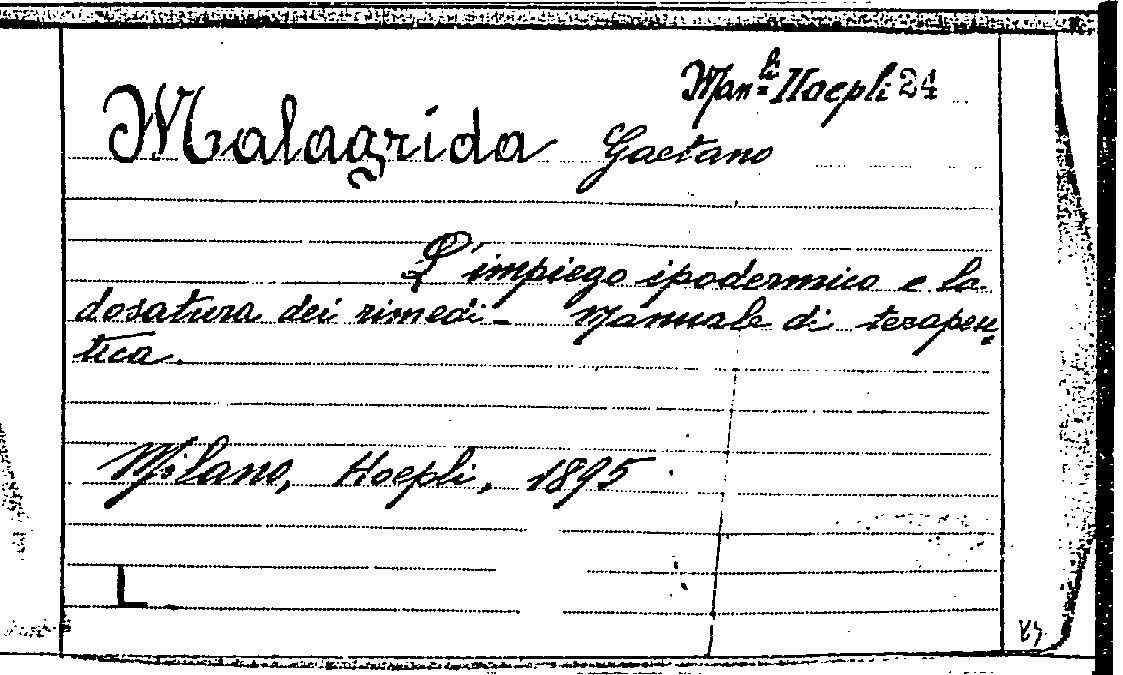 Man.li Hoepli 24
Malagrida Gaetano
L'impiego ipodermico e la
dosatura dei rimedi - Manuale di terapeu=
tica.
Milano, Hoepli, 1895
L